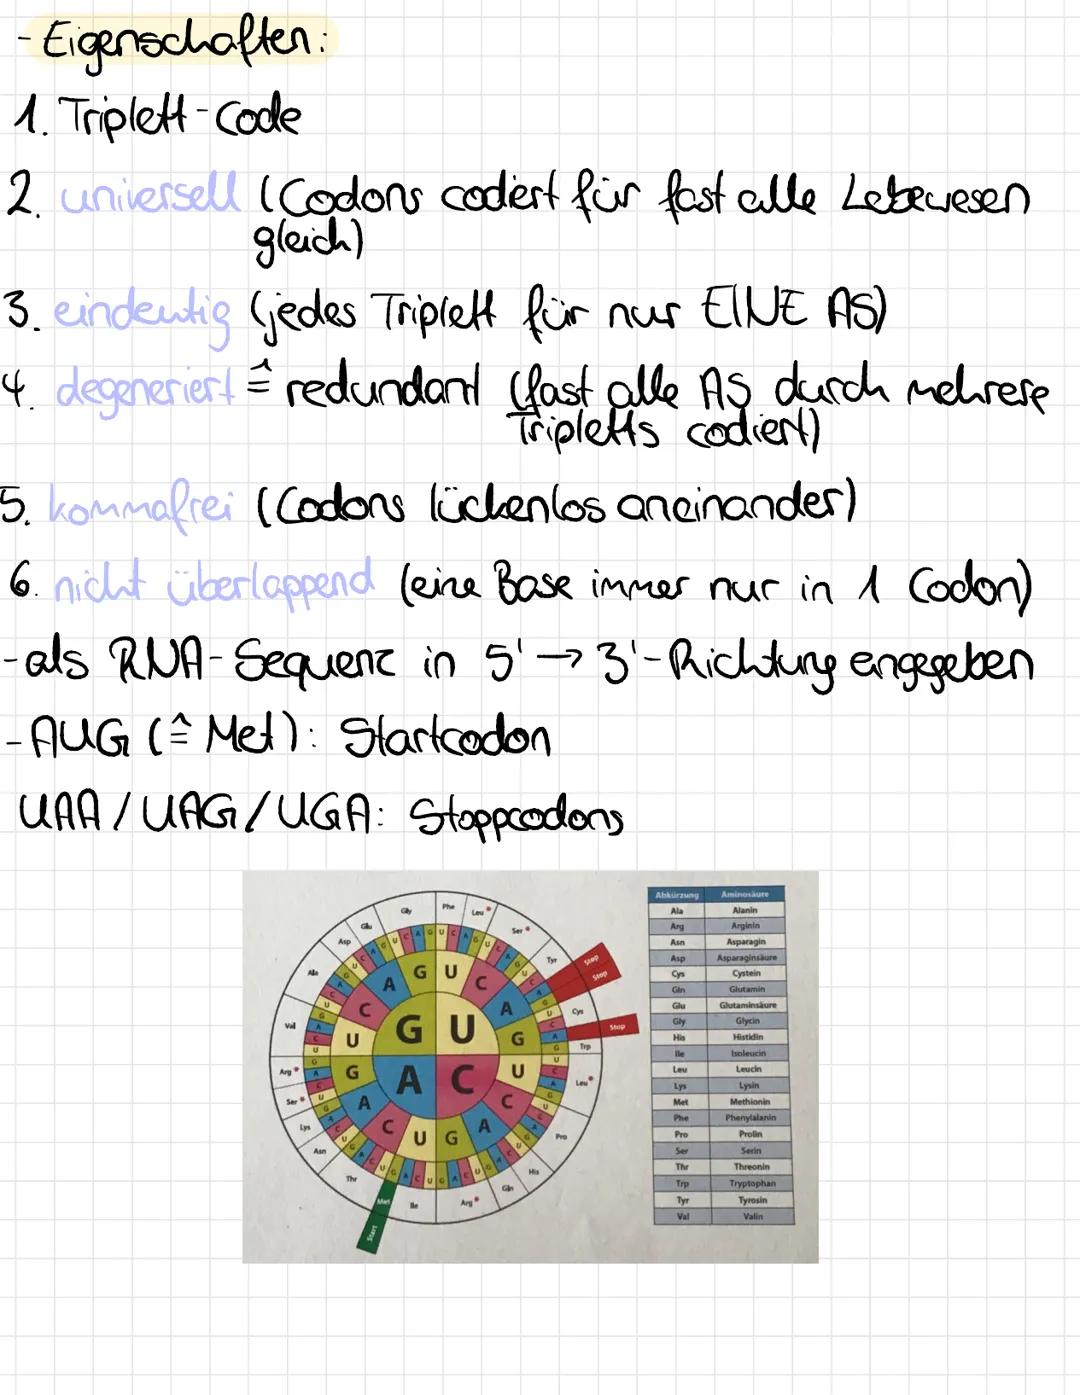 - Eigenschaften:
1. Triplett-Code
2. universell (Codons codiert für fast alle Lebewesen
gleich)
3. eindeutig (jedes Triplett für nur EINE AS)
4. degeneriert ≙ redundant (fast alle AS durch mehrere
Tripletts codiert)
5. kommafrei (Codons lückenlos aneinander)
6. nicht überlappend (eine Base immer nur in 1 Codon)
-als RNA-Sequenz in 5' → 3'-Richtung angegeben
-AUG (≙ Met): Startcodon
UAA / UAG / UGA: Stoppcodons
Gly Phe Leu
Glu Ser
Asp Tyr Stop
Stop
Ala Cys
Val Stop
Trp
Arg Leu
Ser
Lys Pro
Asn His
Thr Gln
Met Ile Arg
Start
A G U C
C A
U G U G
G A C U
A C
C U G A
Abkürzung Aminosäure
Ala Alanin
Arg Arginin
Asn Asparagin
Asp Asparaginsäure
Cys Cystein
Gln Glutamin
Glu Glutaminsäure
Gly Glycin
His Histidin
Ile Isoleucin
Leu Leucin
Lys Lysin
Met Methionin
Phe Phenylalanin
Pro Prolin
Ser Serin
Thr Threonin
Trp Tryptophan
Tyr Tyrosin
Val Valin